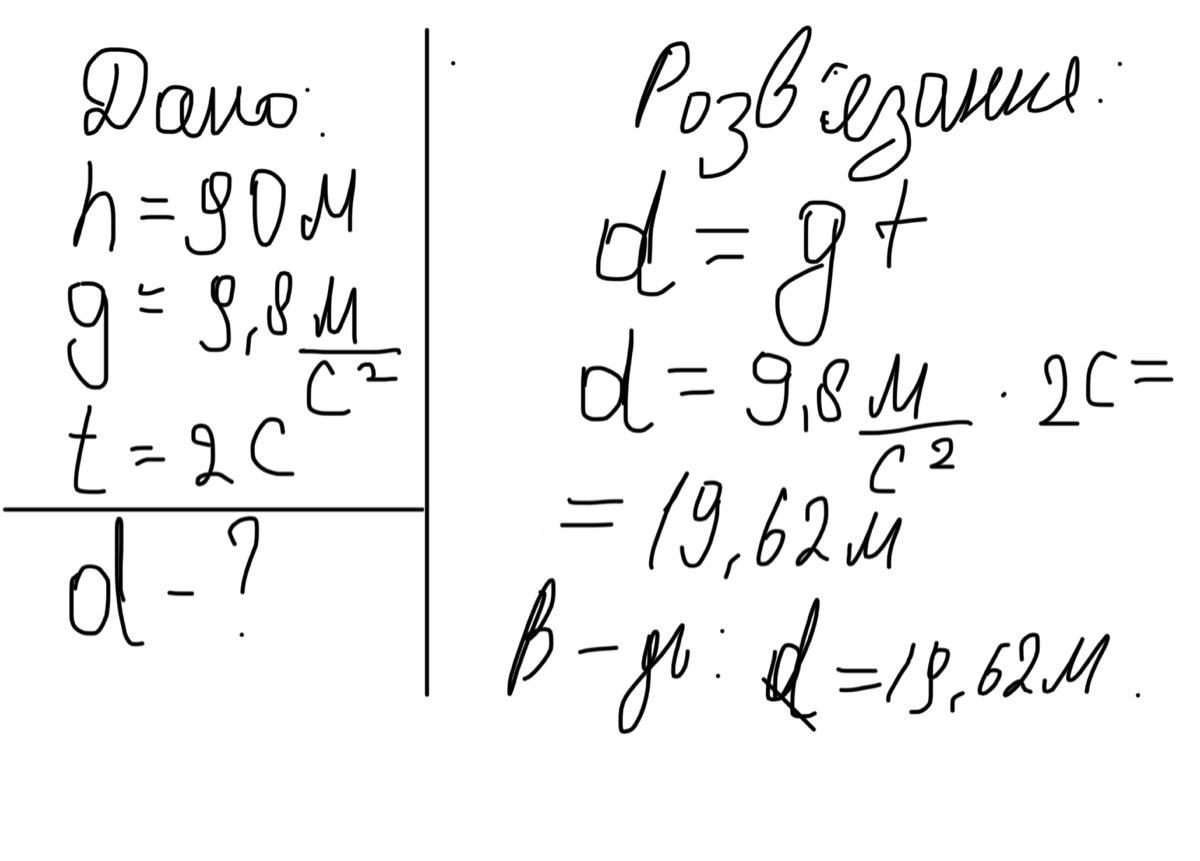 Дано:
h = 90 м
g = 9,8 м/с²
t = 2 с
d - ?
Розв'язання:
d = gt
d = 9,8 м/с² · 2с =
= 19,62 м
В-дь: d = 19,62 м.